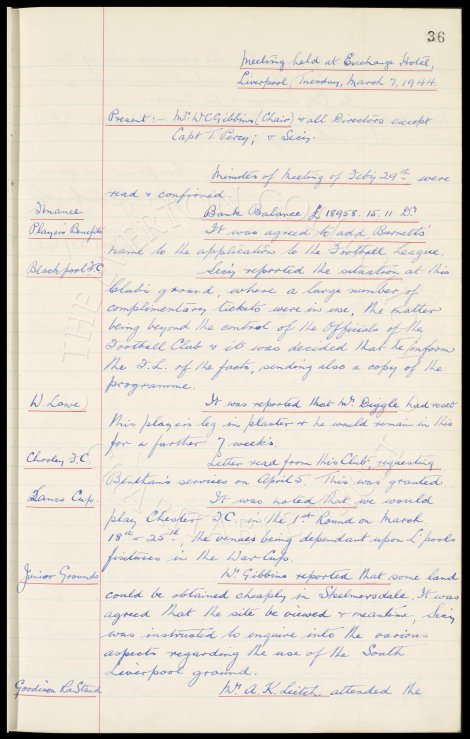 36
Meeting held at Exchange Hotel,
Liverpool, Tuesday, March 7, 1944.
Present:- Mr W C Gibbins (Chair) & all Directors except
Capt T. Percy; & Secy.
Minutes of Meeting of Feby 29th were
read & confirmed.
Finance Bank Balance £18958. 15. 11 Dr
Players Benefits It was agreed to add Burnetts'
name to the application to the Football League.
Blackpool F.C Secy reported the situation at this
Club's ground, where a large number of
complimentary tickets were in use, the matter
being beyond the control of the Officials of the
Football Club & it was decided that he inform
the F.L. of the facts, sending also a copy of the
programme.
W. Lowe It was reported that Mr Diggle had reset
this players leg in plaster & he would remain in this
for a further 7 weeks.
Chorley F.C Letter read from this Club, requesting
Bentham's services on April 5. This was granted
Lancs Cup. It was noted that we would
play Chester F.C. in the 1st Round on March
18th - 25th the venues being dependant upon L'pools
fixtures in the War Cup.
Junior Grounds Mr Gibbins reported that some land
could be obtained cheaply in Skelmersdale. It was
agreed that the site be viewed & meantime, Secy
was instructed to enquire into the various
aspects regarding the use of the South
Liverpool ground.
Goodison Rd Stand Mr A. K. Leitch attended the